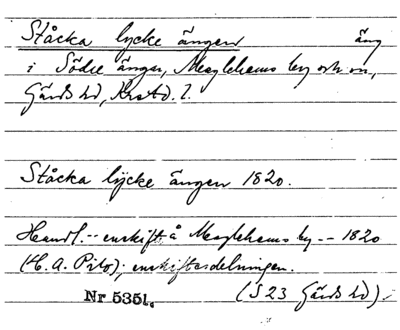 Ståcka lycke ängen äng
i Södre ängar, Maglehems by och sn,
Gärds hd, Krstd. l.
Ståcka lÿcke ängen 1820.
Handl. -- enskift å Maglehems by -- 1820
(H. A. Pito); enskiftesdelningen.
Nr 5351. (S 23 Gärds hd)